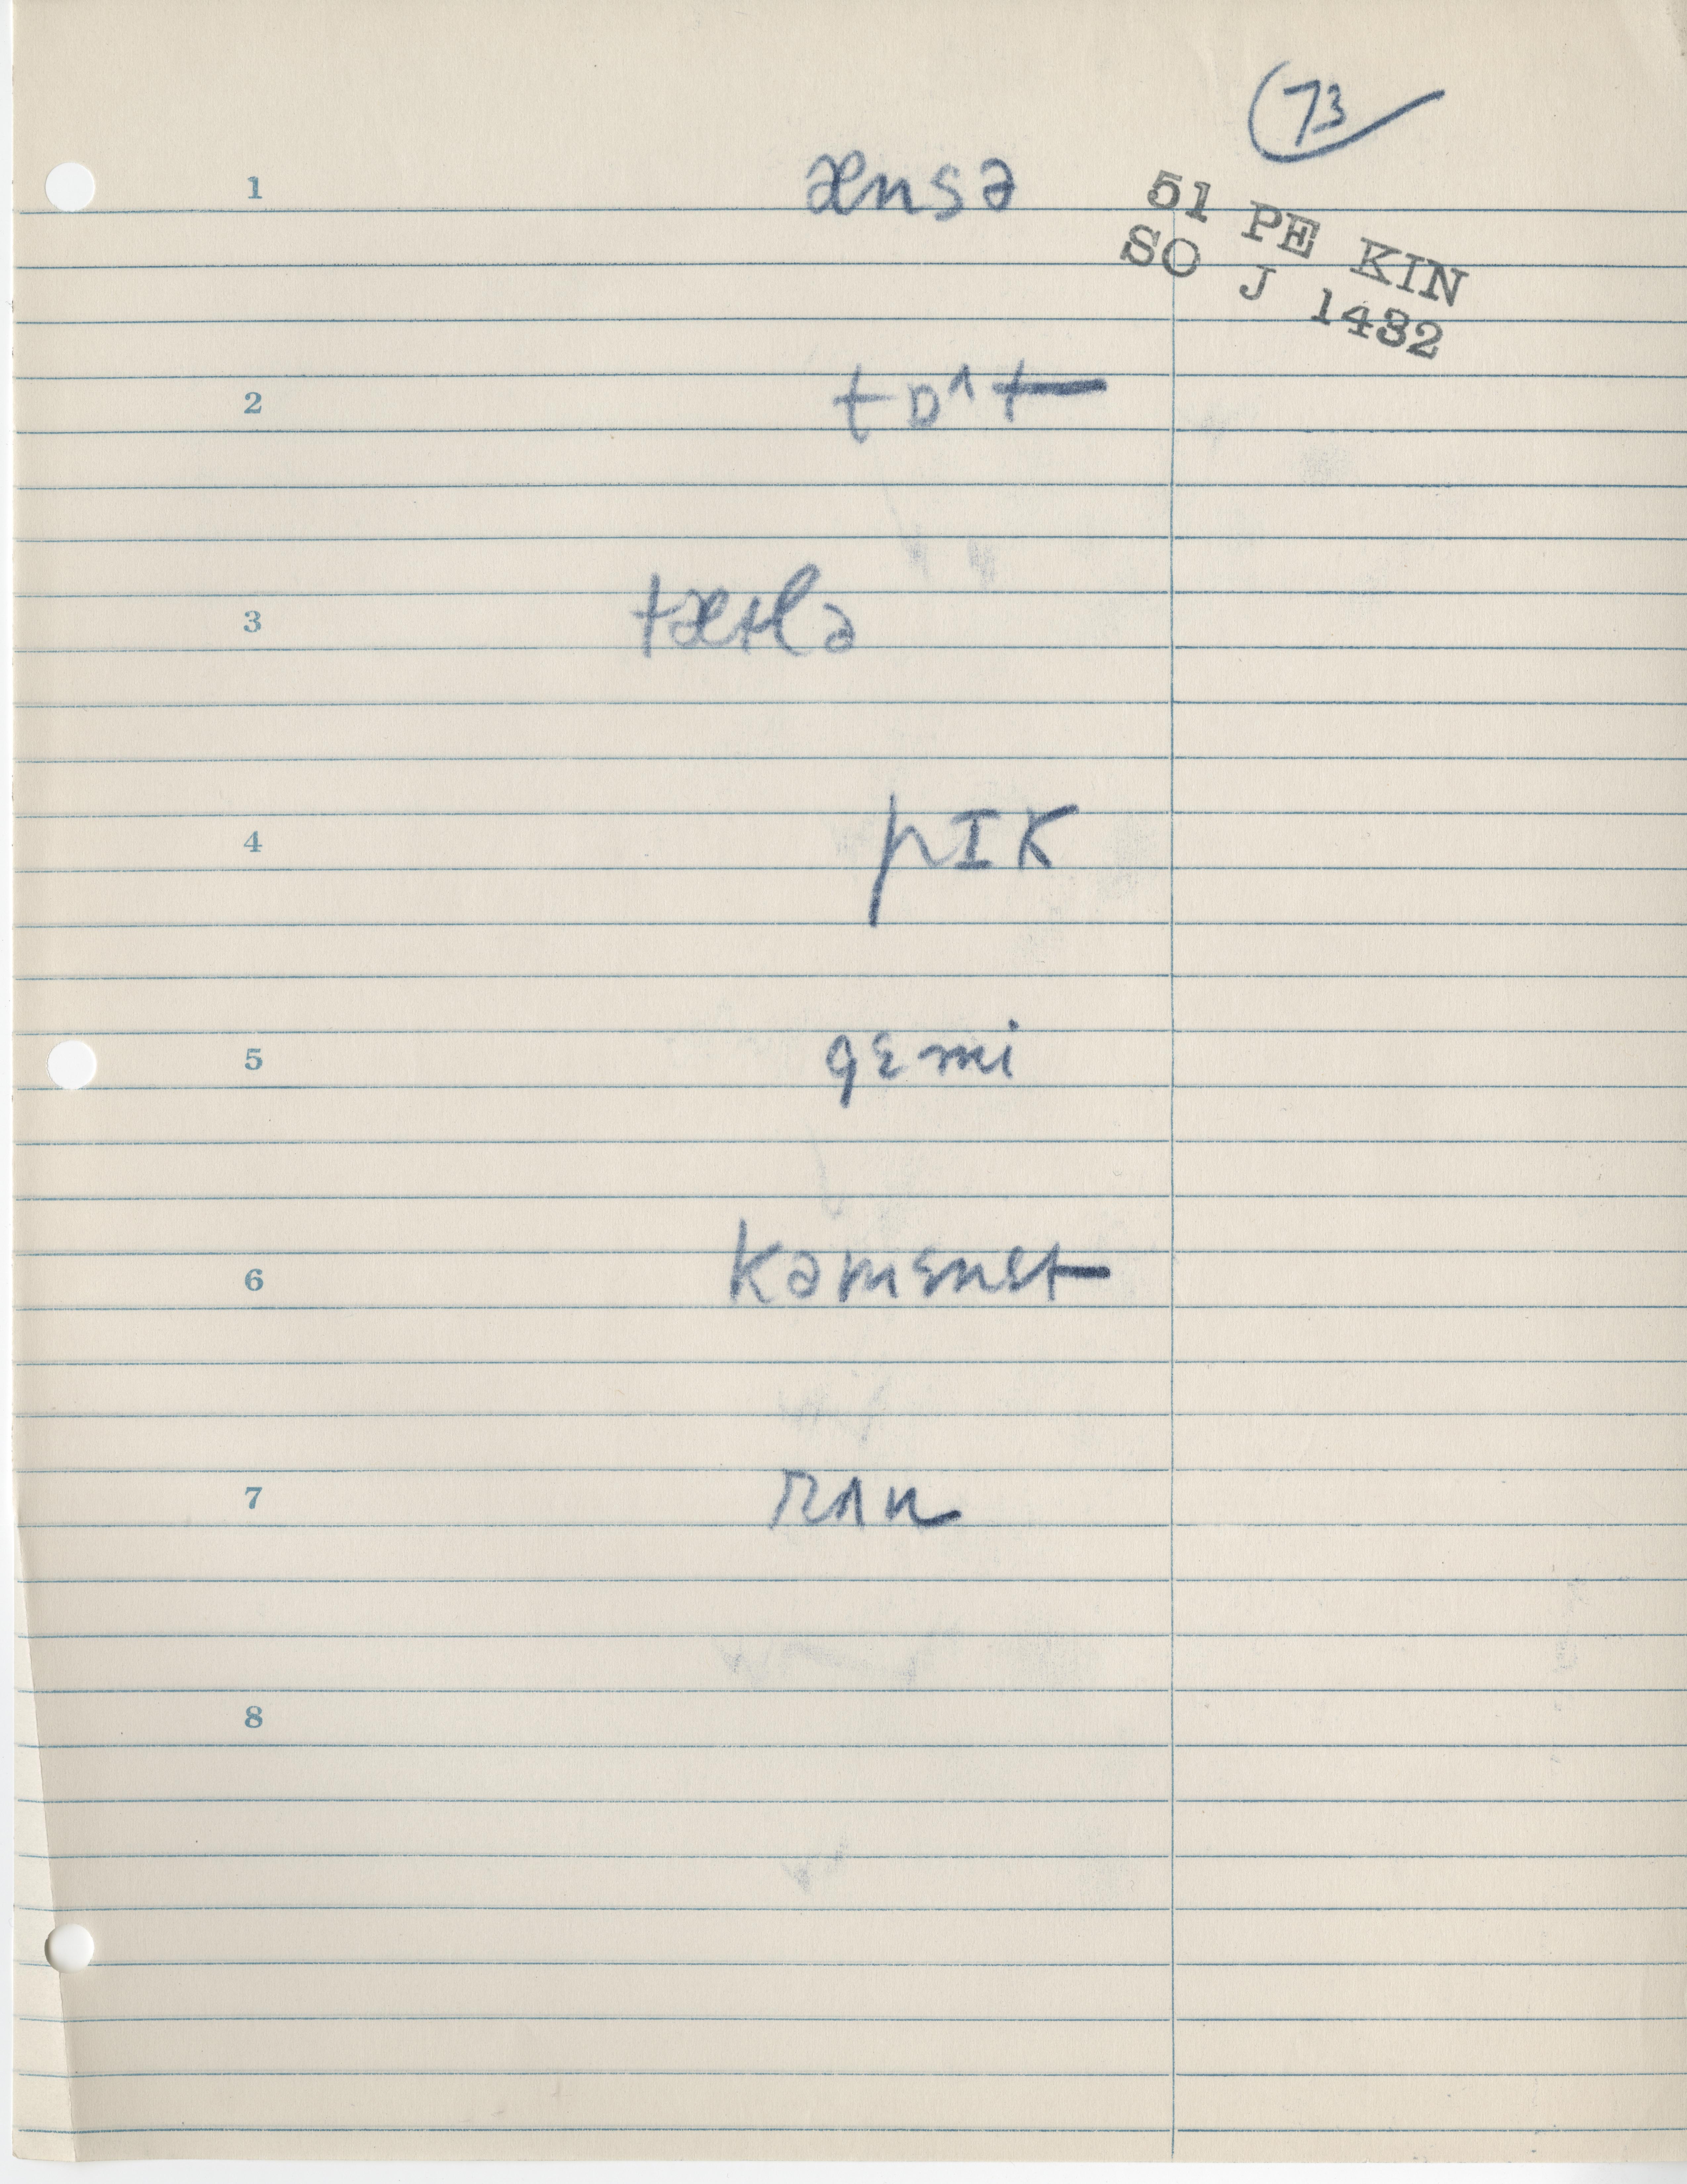 73
1 ænsə
51 PE KIN
SO J 1432
2 tɒ^t
3 tætlə
4 pIK
5 gɛmi
6 Kəmɛnɛt
7 rʌn
8